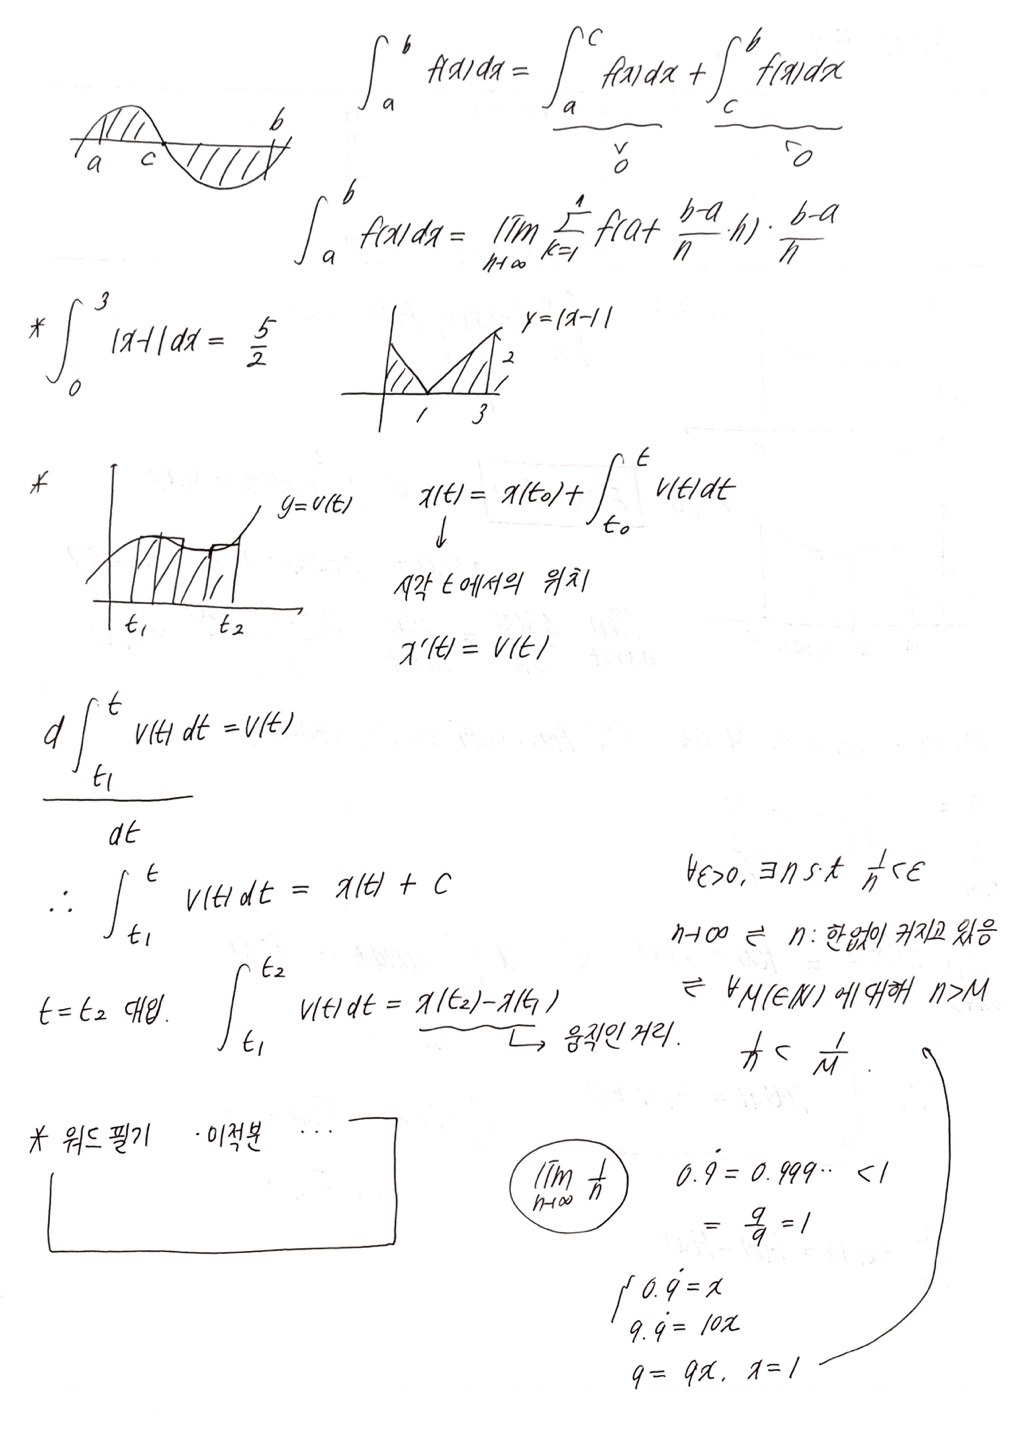 ∫_a^b f(x)dx = ∫_a^c f(x)dx + ∫_c^b f(x)dx
a c b
∨ 0
0
∫_a^b f(x)dx = lim_{n→∞} Σ_{k=1} f(a+ (b-a)/n ·n) · (b-a)/n
* ∫_0^3 |x-1|dx = 5/2
y=|x-1|
2
1 3
*
y=v(t)
t₁ t₂
x(t) = x(t₀) + ∫_{t₀}^t v(t)dt
↓
시각 t에서의 위치
x'(t) = v(t)
d∫_{t₁}^t v(t)dt / dt = v(t)
∴ ∫_{t₁}^t v(t)dt = x(t) + C
t=t₂ 대입. ∫_{t₁}^{t₂} v(t)dt = x(t₂)-x(t₁)
↳ 움직인 거리.
∀ε>0, ∃n s.t 1/n<ε
n→∞ ⇌ n: 한없이 커지고 있음
⇌ ∀M(∈N)에 대해 n>M
1/n < 1/M .
* 워드 필기 ·이적분 ···
lim_{n→∞} 1/n
0.9̇ = 0.999·· <1
= 9/9 = 1
0.9̇ = x
9.9̇ = 10x
9 = 9x. x=1